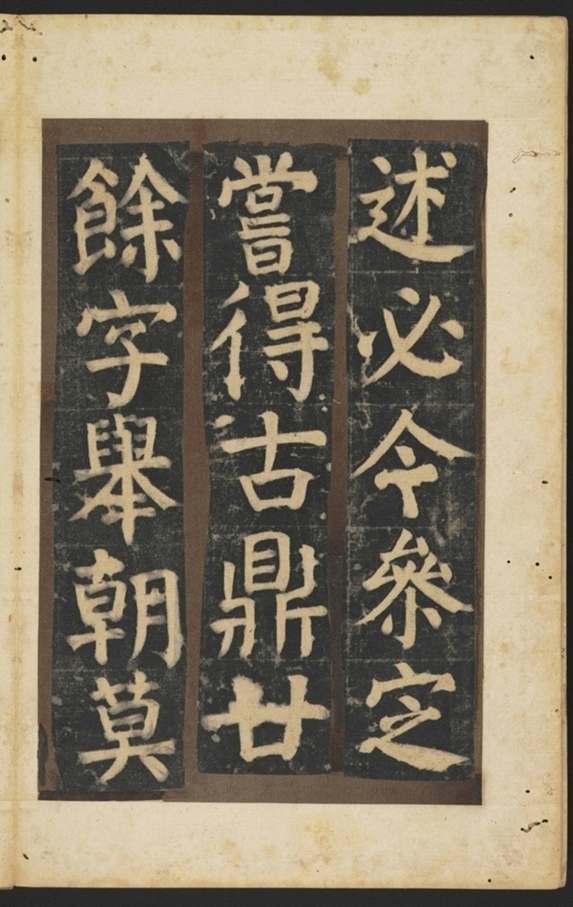 述必令參定
嘗得古鼎廿
餘字舉朝莫